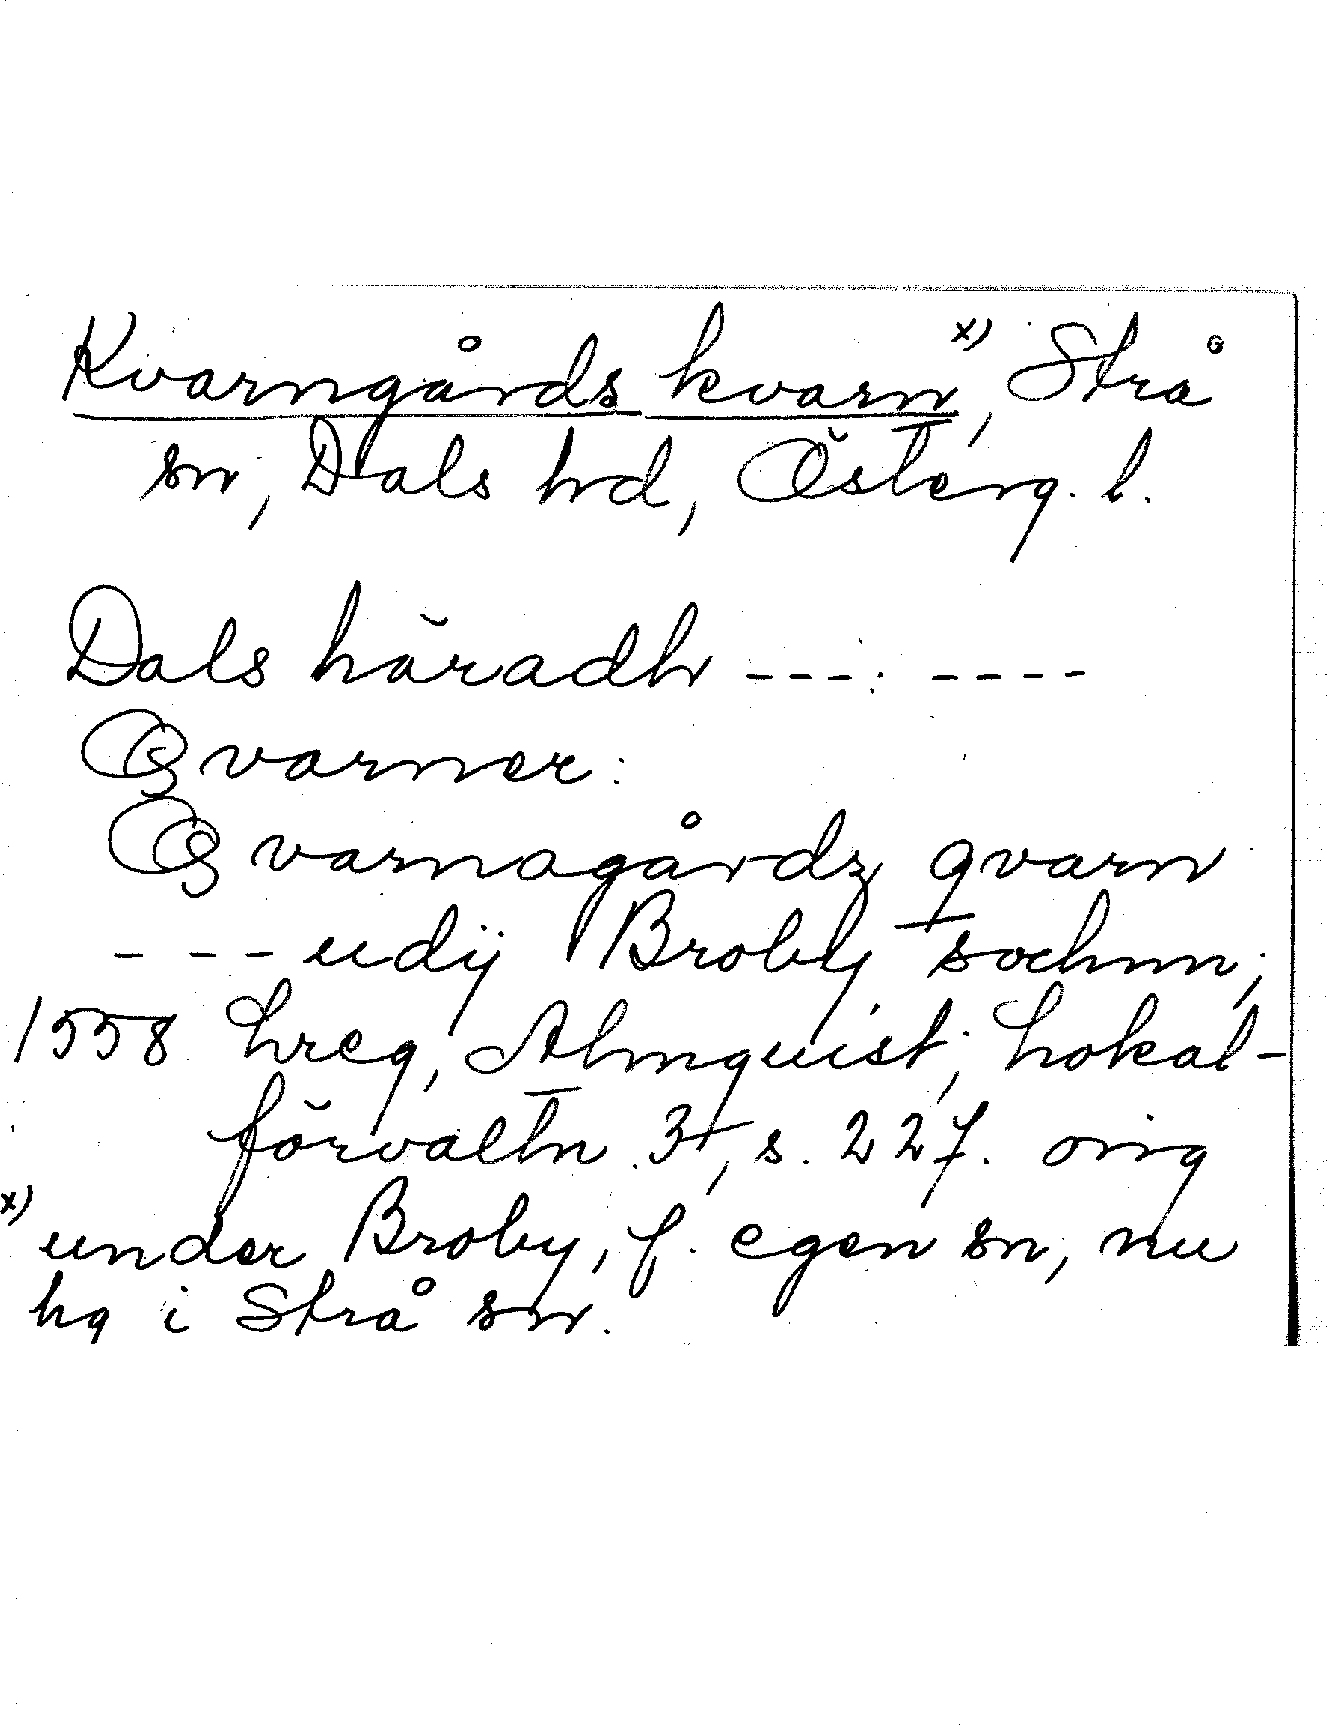 Kvarngårds kvarn x), Strå
sn, Dals hd, Österg. l.
Dals häradh ---. ----
Qvarner:
Qvarnagårdz qvarn
--- udij Broby sochnn;
1558 hreg, Almquist, Lokal-
förvaltn 3, s. 227. orig
x) under Broby, f. egen sn, nu
hg i Strå sn.